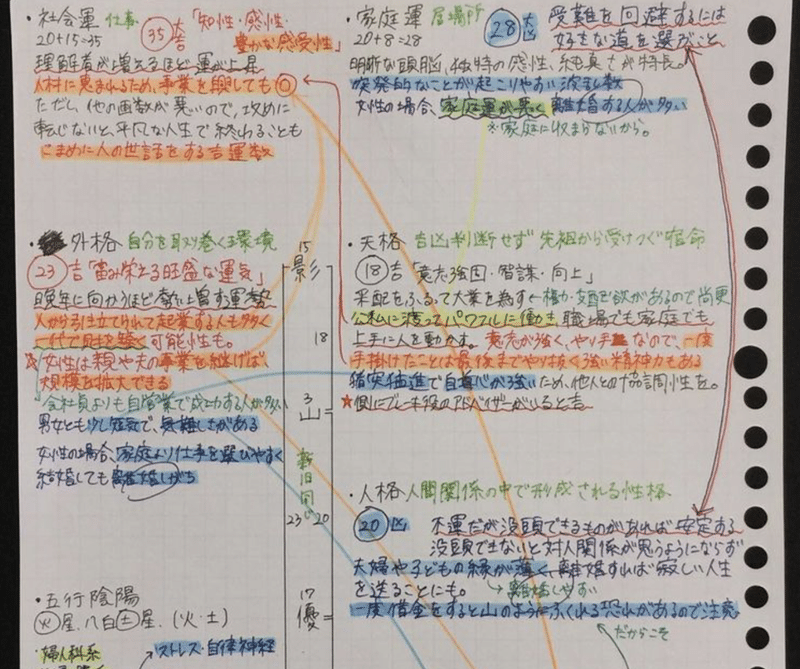 ・社会運 仕事
20+15=35 35 吉 「知性・感性・
豊かな感受性」
理解者が増えるほど運が上昇
人材に恵まれるため、事業を興しても◎
ただし、他の画数が悪いので、攻めに
転じないと、平凡な人生で終わることも
こまめに人の世話をする吉運数
・家庭運 居場所
20+8=28 28 大凶
受難を回避するには
好きな道を選ぶこと
明晰な頭脳、独特の感性、純真さが特長。
突発的なことが起こりやすい波乱数
女性の場合、家庭運が悪く離婚する人が多い
※家庭に収まらないから。
・外格 自分を取り巻く環境
23 吉「富み栄える旺盛な運気」
晩年に向かうほど勢い増す運勢
人から引き立てられて起業する人も多く
一代で財を築く可能性も。
☆女性は親や夫の事業を継げば、
規模を拡大できる
会社員よりも自営業で成功する人が多い
男女とも少し短気で、気難しさがある
女性の場合、家庭より仕事を選びやすく
結婚しても離婚しがち
15
影
18
3
山
新旧同じ
23 20
17
優
・天格 吉凶判断せず 先祖から受けつぐ宿命
18 吉「意志強固・智謀・向上」
采配をふるって大業を為す 権力・支配欲があるので尚更
公私に渡ってパワフルに働き、職場でも家庭でも
上手に人を動かす。意志が強く、やり手なので、一度
手掛けたことは最後までやり抜く強い精神力もある
猪突猛進で自尊心が強いため、他人との協調性を。
★側にブレーキ役のアドバイザーがいると吉
・人格 人間関係の中で形成される性格
20 凶 不運だが没頭できるものがあれば安定する
没頭できないと対人関係が思うようにならず
夫婦や子どもの縁が薄く、離婚すれば寂しい人生
を送ることにも。 →離婚しやすい
一度借金をすると山のようにふくれる恐れがあるので注意
だからこそ
・五行陰陽
火星、八白土星、(火・土)
婦人科系
ストレス・自律神経